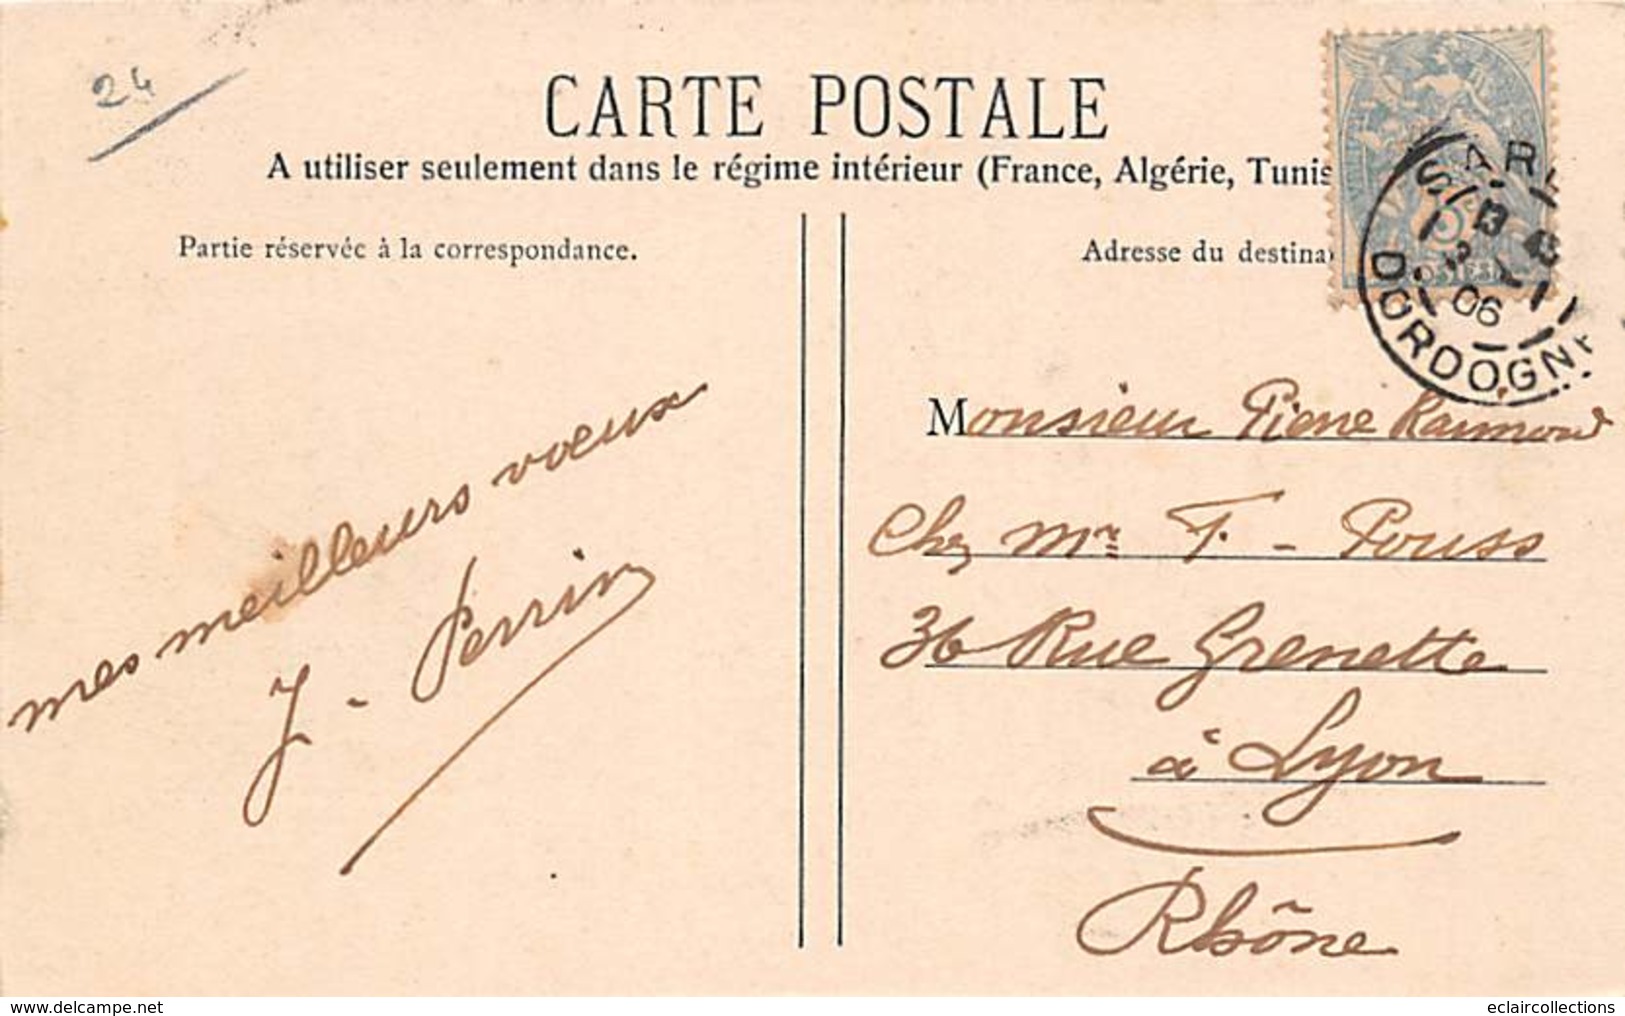 24
CARTE POSTALE
A utiliser seulement dans le régime intérieur (France, Algérie, Tunis
Partie réservée à la correspondance.
Adresse du destina
SARL
13
06
DORDOGNE
mes meilleurs voeux
J - Perrin
Monsieur Pierre Raimond
Chez Mr F. - Pouss
36 Rue Grenette
à Lyon
Rhône
www.delcampe.net
eclaircollections